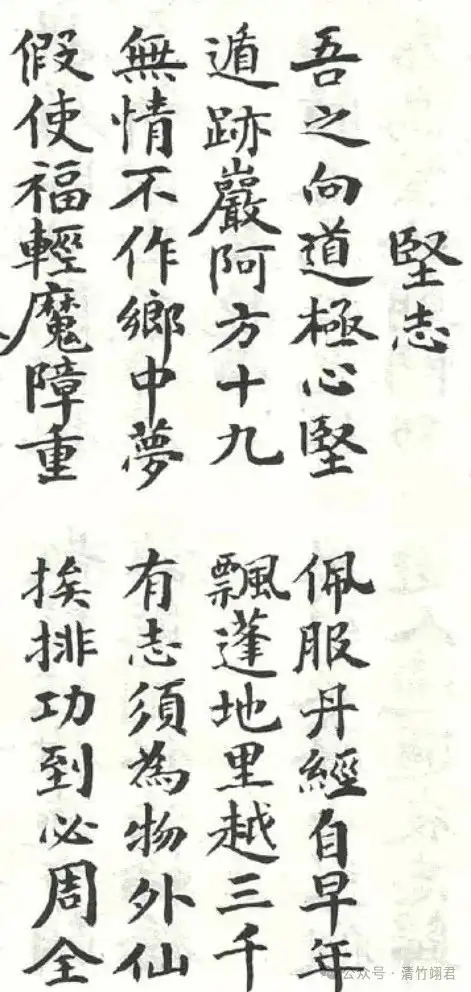 堅志
吾之向道極心堅 佩服丹經自早年
遁跡巖阿方十九 飄蓬地里越三千
無情不作鄉中夢 有志須為物外仙
假使福輕魔障重 挨排功到必周全
公众号·清竹翊君